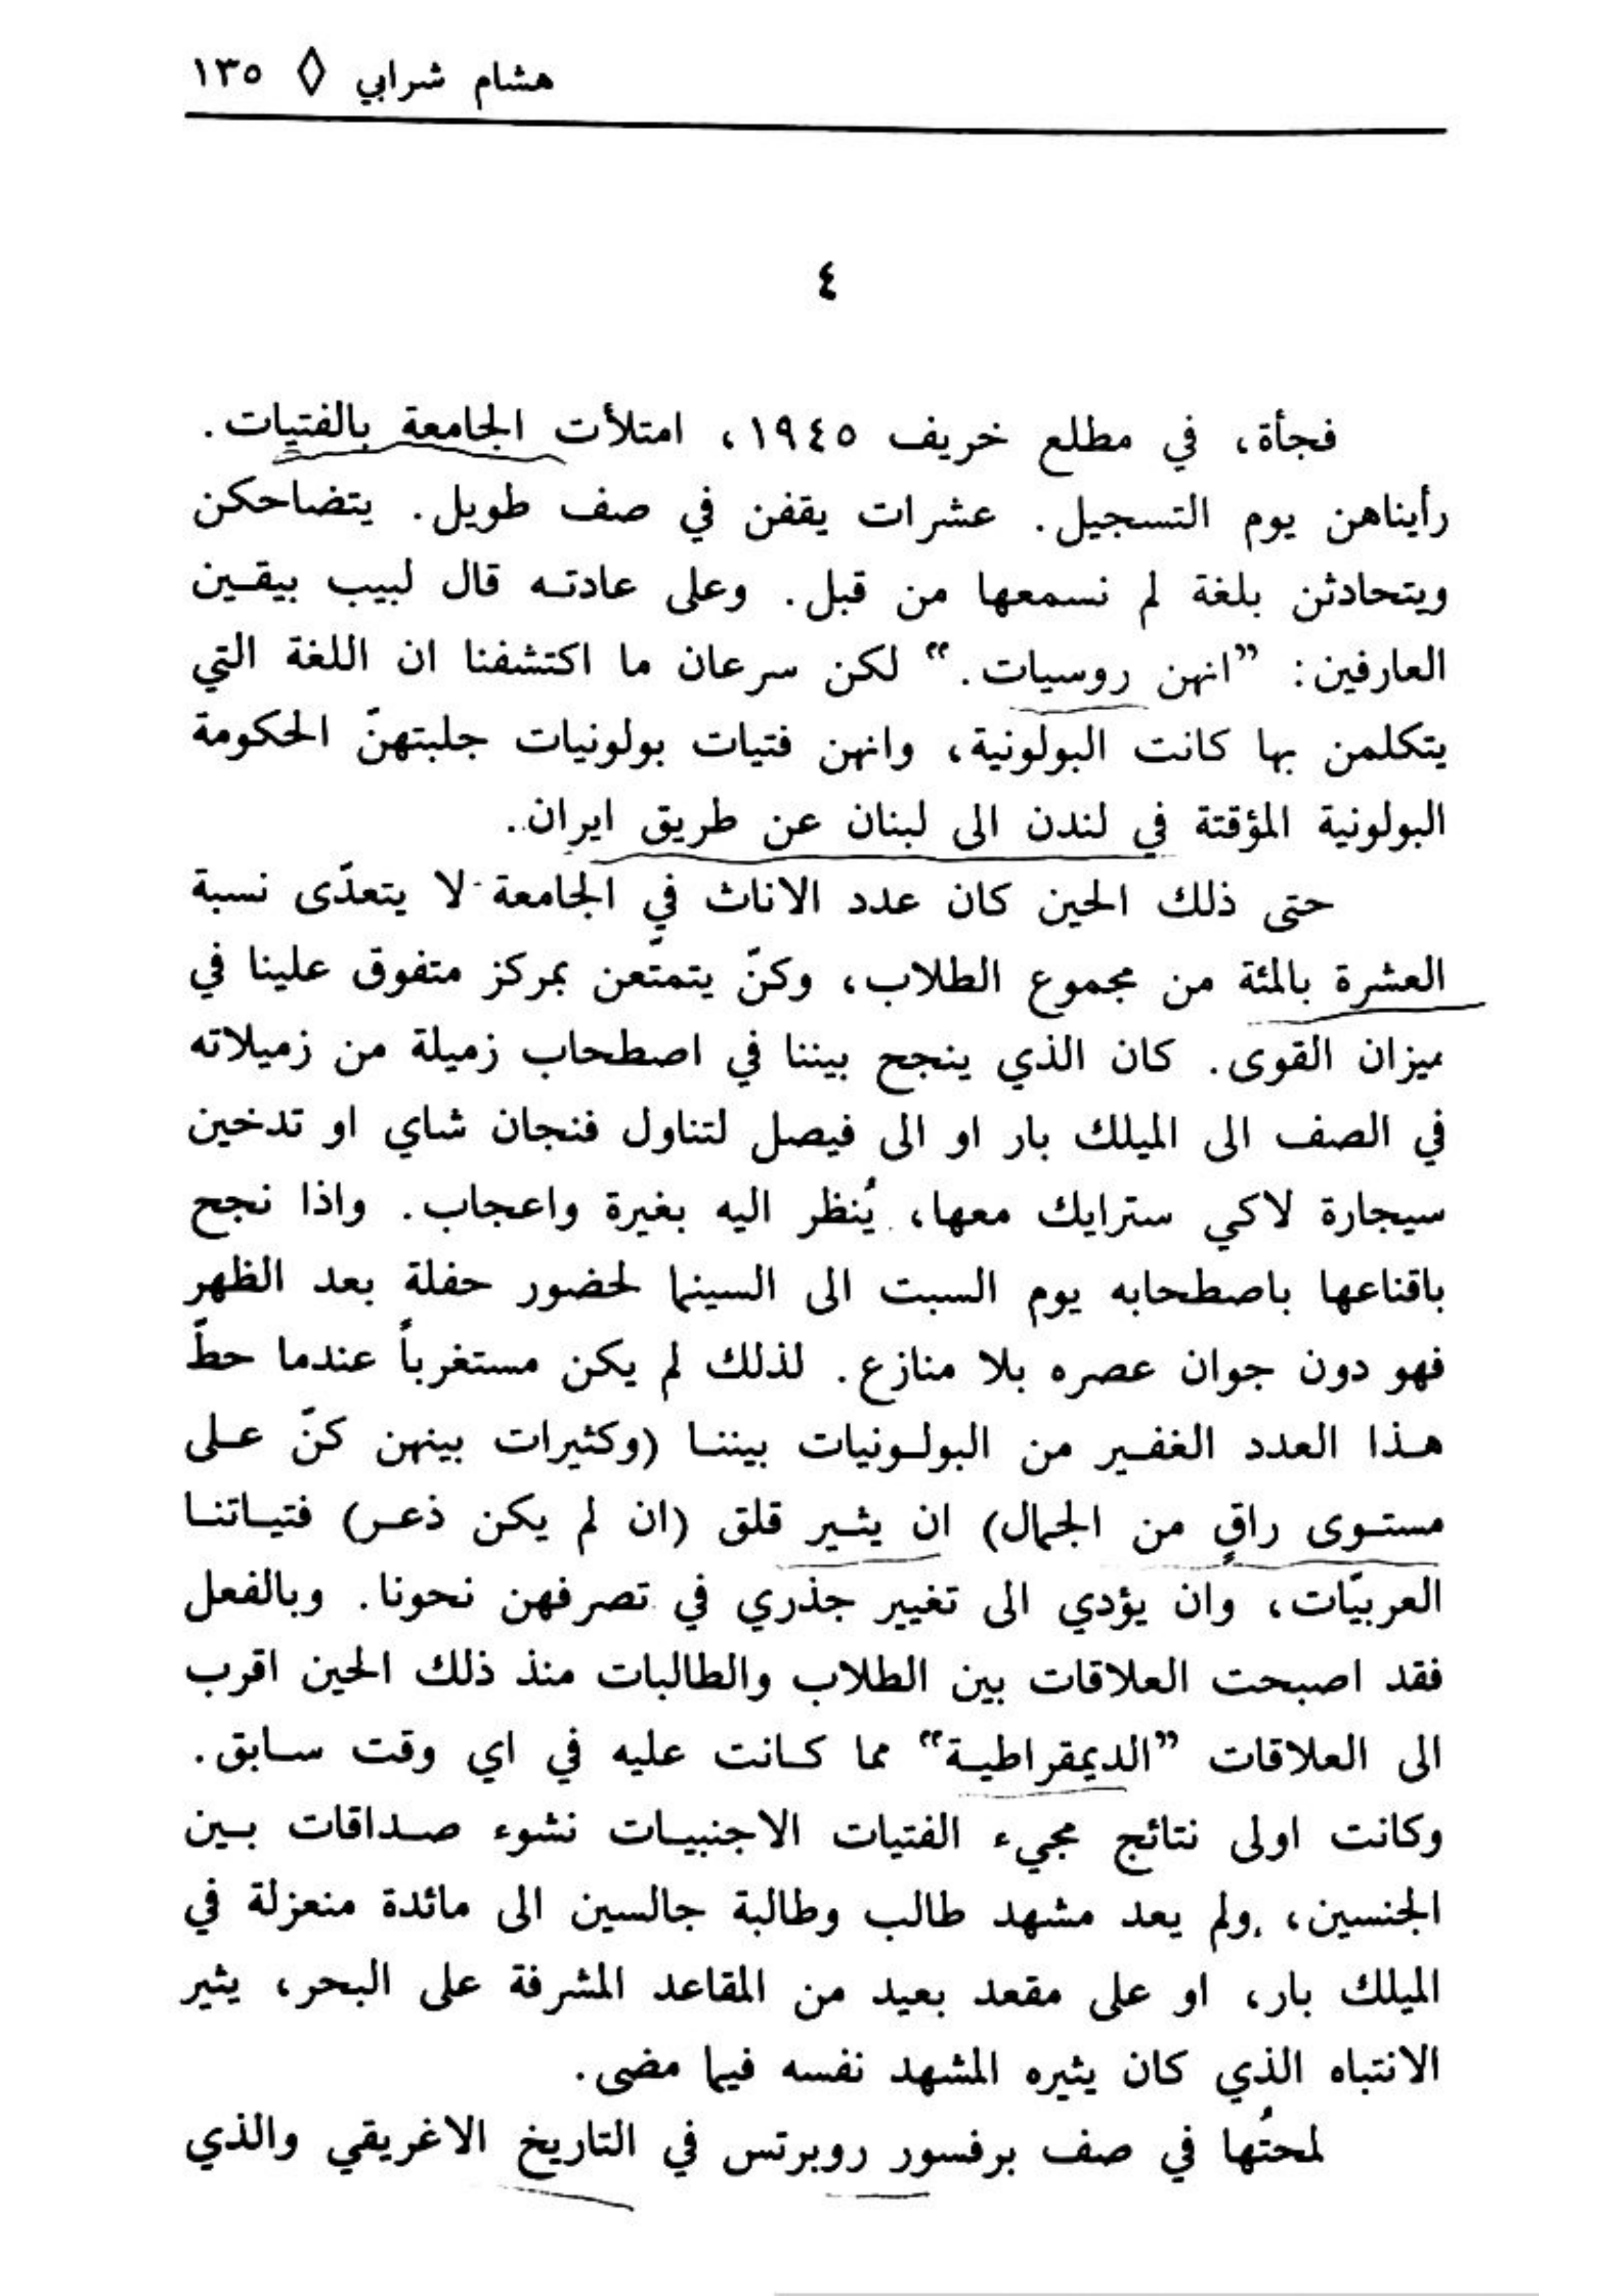 هشام شرابي ◊ ١٣٥
٤
فجأة، في مطلع خريف ١٩٤٥، امتلأت الجامعة بالفتيات.
رأيناهن يوم التسجيل. عشرات يقفن في صف طويل. يتضاحكن
ويتحادثن بلغة لم نسمعها من قبل. وعلى عادته قال لبيب بيقين
العارفين: ”انهن روسيات.“ لكن سرعان ما اكتشفنا ان اللغة التي
يتكلمن بها كانت البولونية، وانهن فتيات بولونيات جلبتهنّ الحكومة
البولونية المؤقتة في لندن الى لبنان عن طريق ايران.
حتى ذلك الحين كان عدد الاناث في الجامعة لا يتعدّى نسبة
العشرة بالمئة من مجموع الطلاب، وكنّ يتمتّعن بمركز متفوق علينا في
ميزان القوى. كان الذي ينجح بيننا في اصطحاب زميلة من زميلاته
في الصف الى الميلك بار او الى فيصل لتناول فنجان شاي او تدخين
سيجارة لاكي سترايك معها، يُنظر اليه بغيرة واعجاب. واذا نجح
باقناعها باصطحابه يوم السبت الى السينما لحضور حفلة بعد الظهر
فهو دون جوان عصره بلا منازع. لذلك لم يكن مستغرباً عندما حطّ
هذا العدد الغفير من البولونيات بيننا (وكثيرات بينهن كنّ على
مستوى راقٍ من الجمال) ان يثير قلق (ان لم يكن ذعر) فتياتنا
العربيّات، وان يؤدي الى تغيير جذري في تصرفهن نحونا. وبالفعل
فقد اصبحت العلاقات بين الطلاب والطالبات منذ ذلك الحين اقرب
الى العلاقات ”الديمقراطية“ مما كانت عليه في اي وقت سابق.
وكانت اولى نتائج مجيء الفتيات الاجنبيات نشوء صداقات بين
الجنسين، ولم يعد مشهد طالب وطالبة جالسين الى مائدة منعزلة في
الميلك بار، او على مقعد بعيد من المقاعد المشرفة على البحر، يثير
الانتباه الذي كان يثيره المشهد نفسه فيما مضى.
لمحتُها في صف برفسور روبرتس في التاريخ الاغريقي والذي